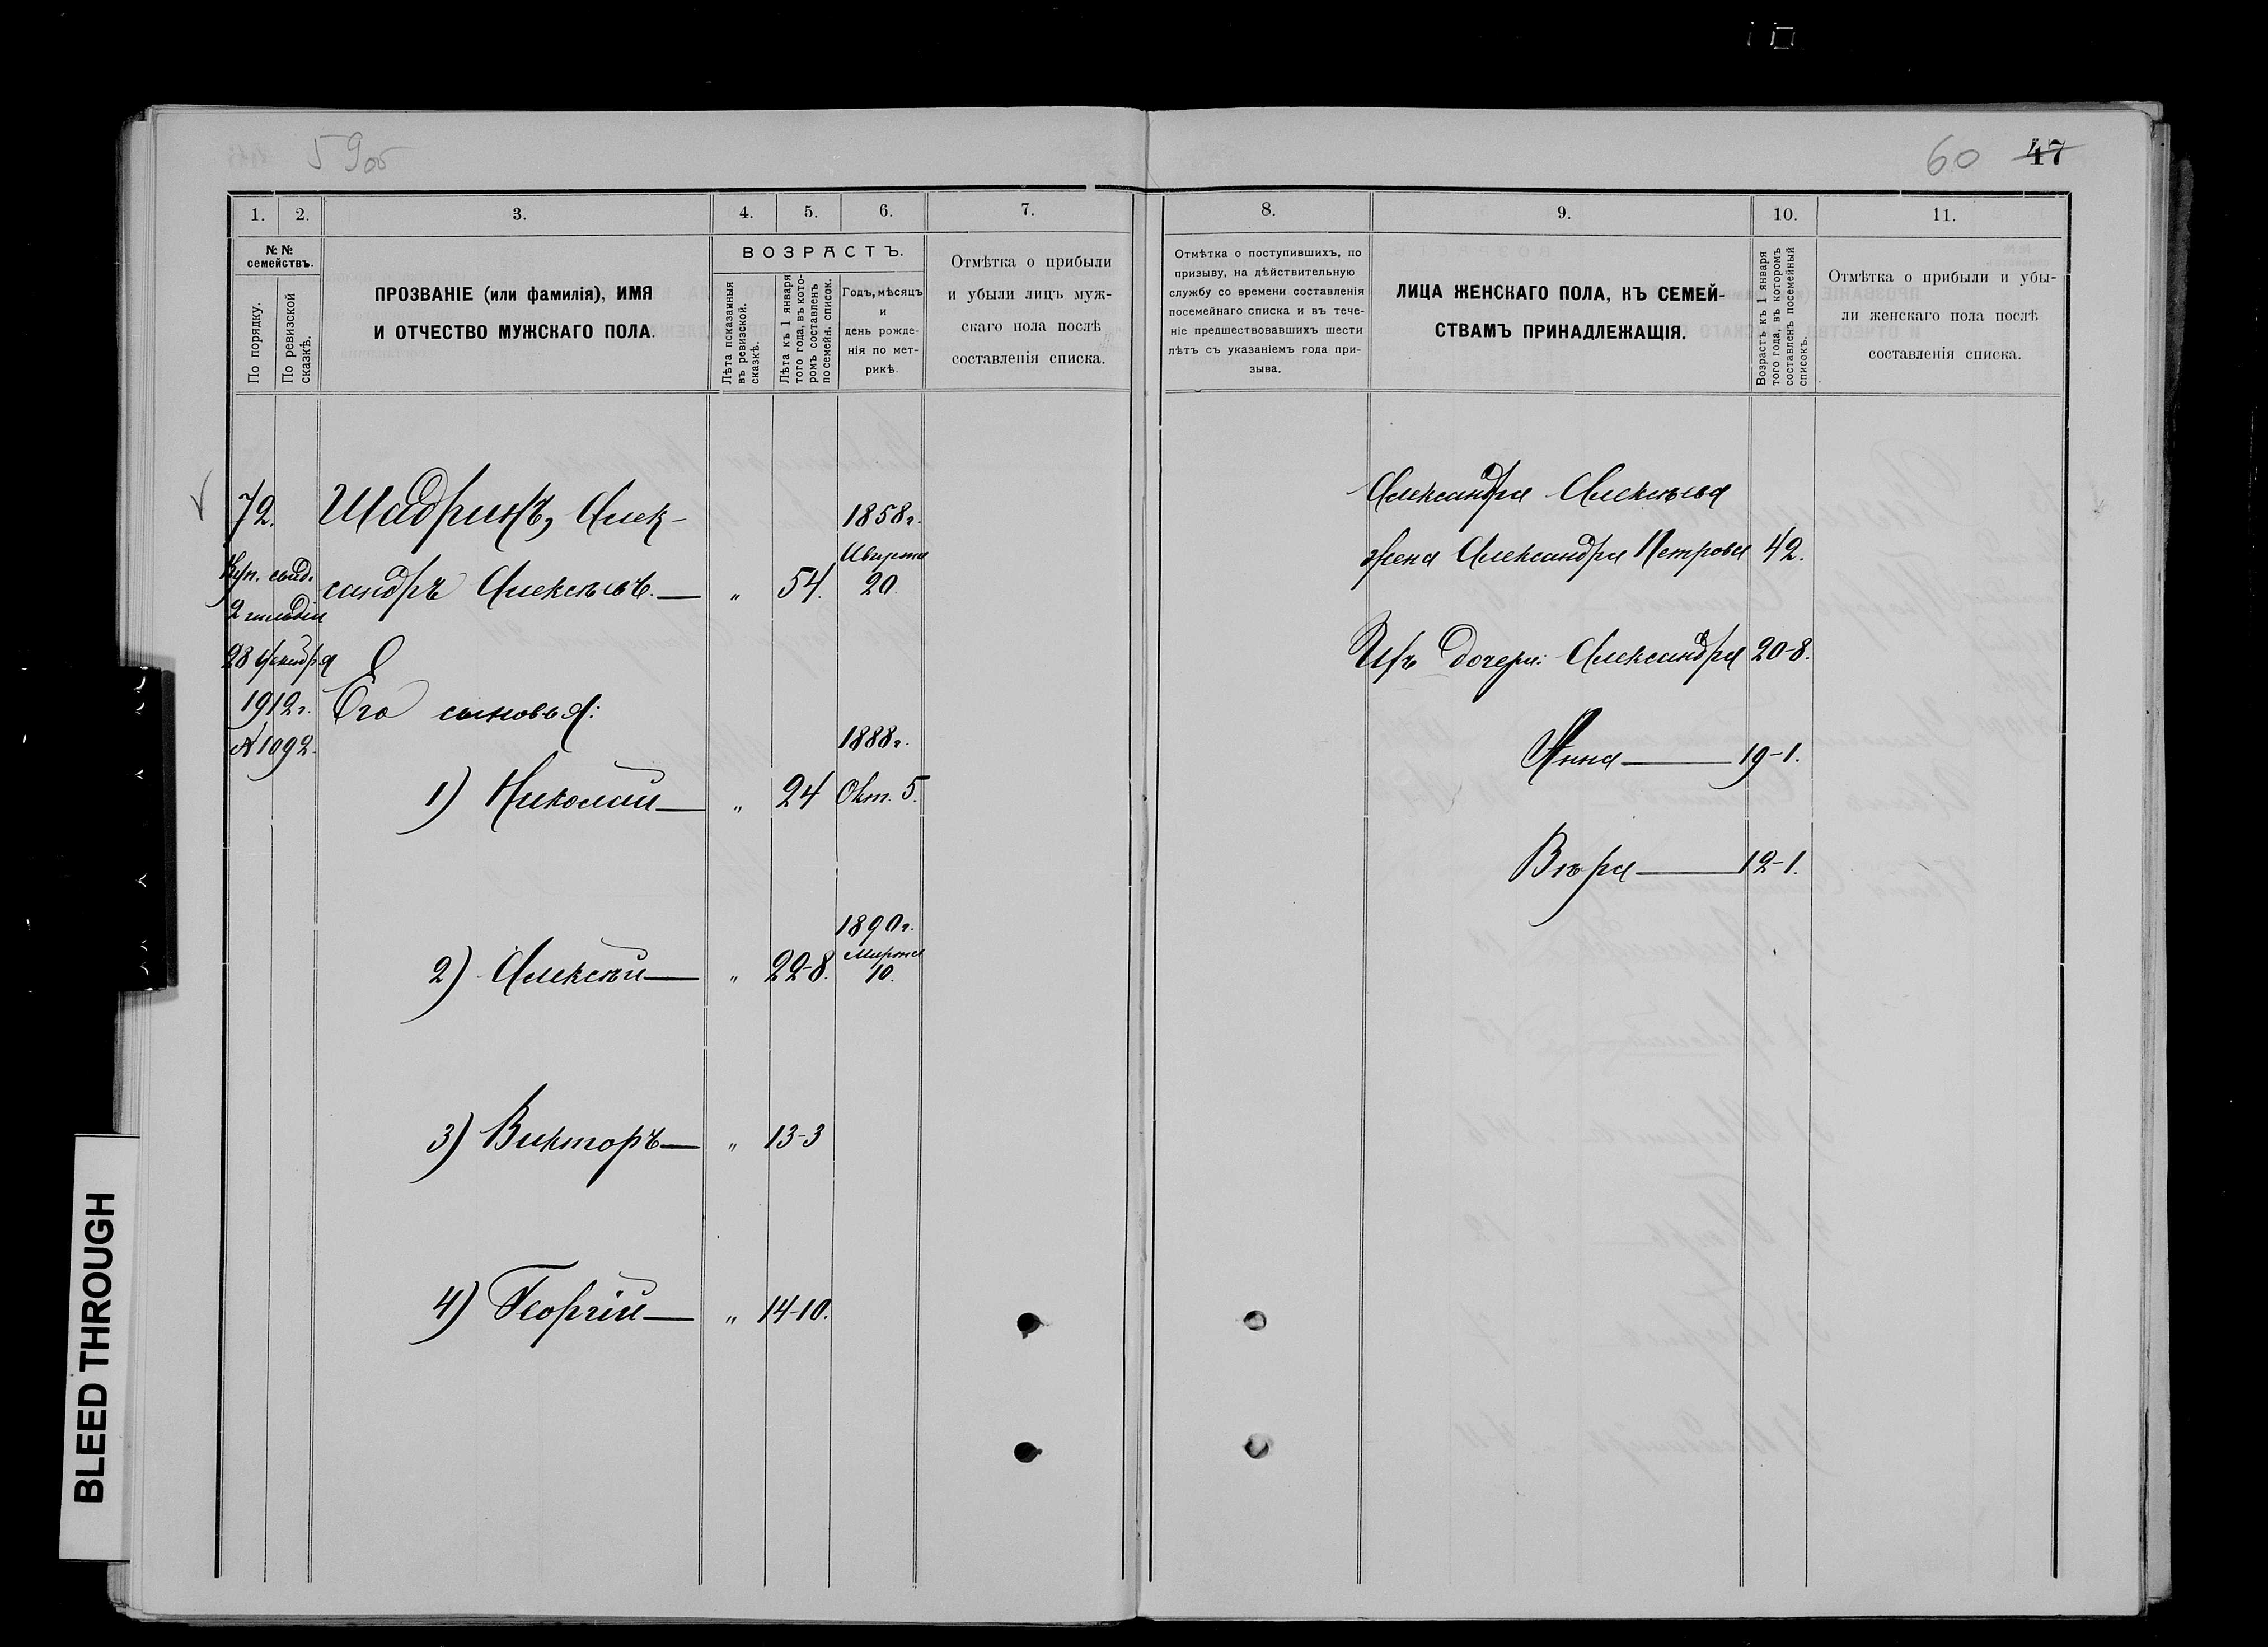 59об
60 47
1. 2. 3. 4. 5. 6. 7.
№ №
семействъ.
По порядку.
По ревизской
сказкѣ.
ПРОЗВАНІЕ (или фамилія), ИМЯ
И ОТЧЕСТВО МУЖСКАГО ПОЛА.
ВОЗРАСТЪ.
Лѣта показанныя
въ ревизской.
сказкѣ.
Лѣта къ 1 января
того года, въ кото-
ромъ составленъ
посемейн. список.
Годъ, мѣсяцъ
и
день рожде-
нія по мет-
рикѣ.
Отмѣтка о прибыли
и убыли лицъ муж-
скаго пола послѣ
составленія списка.
72. Шадринъ, Алек-
1858г.
Августа
Куп. свид. сандръ Алексѣевъ. — " 54. 20.
2 гильдіи
28 декабря
1912г. Его сыновья:
№1092.
1888г.
1) Николай — " 24 Окт. 5.
1890г.
Марта
2) Алексѣй — " 22-8. 10.
3) Викторъ — " 13-3
4) Георгій — " 14-10.
8. 9. 10. 11.
Отмѣтка о поступившихъ, по
призыву, на дѣйствительную
службу со времени составленія
посемейнаго списка и въ тече-
ніе предшествовавшихъ шести
лѣтъ съ указаніемъ года при-
зыва.
ЛИЦА ЖЕНСКАГО ПОЛА, КЪ СЕМЕЙ-
СТВАМЪ ПРИНАДЛЕЖАЩІЯ.
Возрастъ къ 1 января
того года, въ которомъ
составленъ посемейный
списокъ.
Отмѣтка о прибыли и убы-
ли женскаго пола послѣ
составленія списка.
Александра Алексѣева
жена Александра Петрова 42.
Ихъ дочери: Александра 20-8.
Анна — 19-1.
Вѣра — 12-1.
BLEED THROUGH